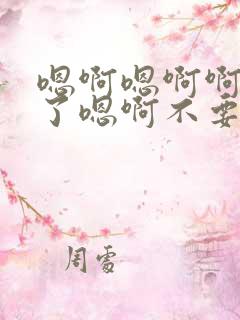 嗯啊嗯啊啊
了嗯啊不要
周雪